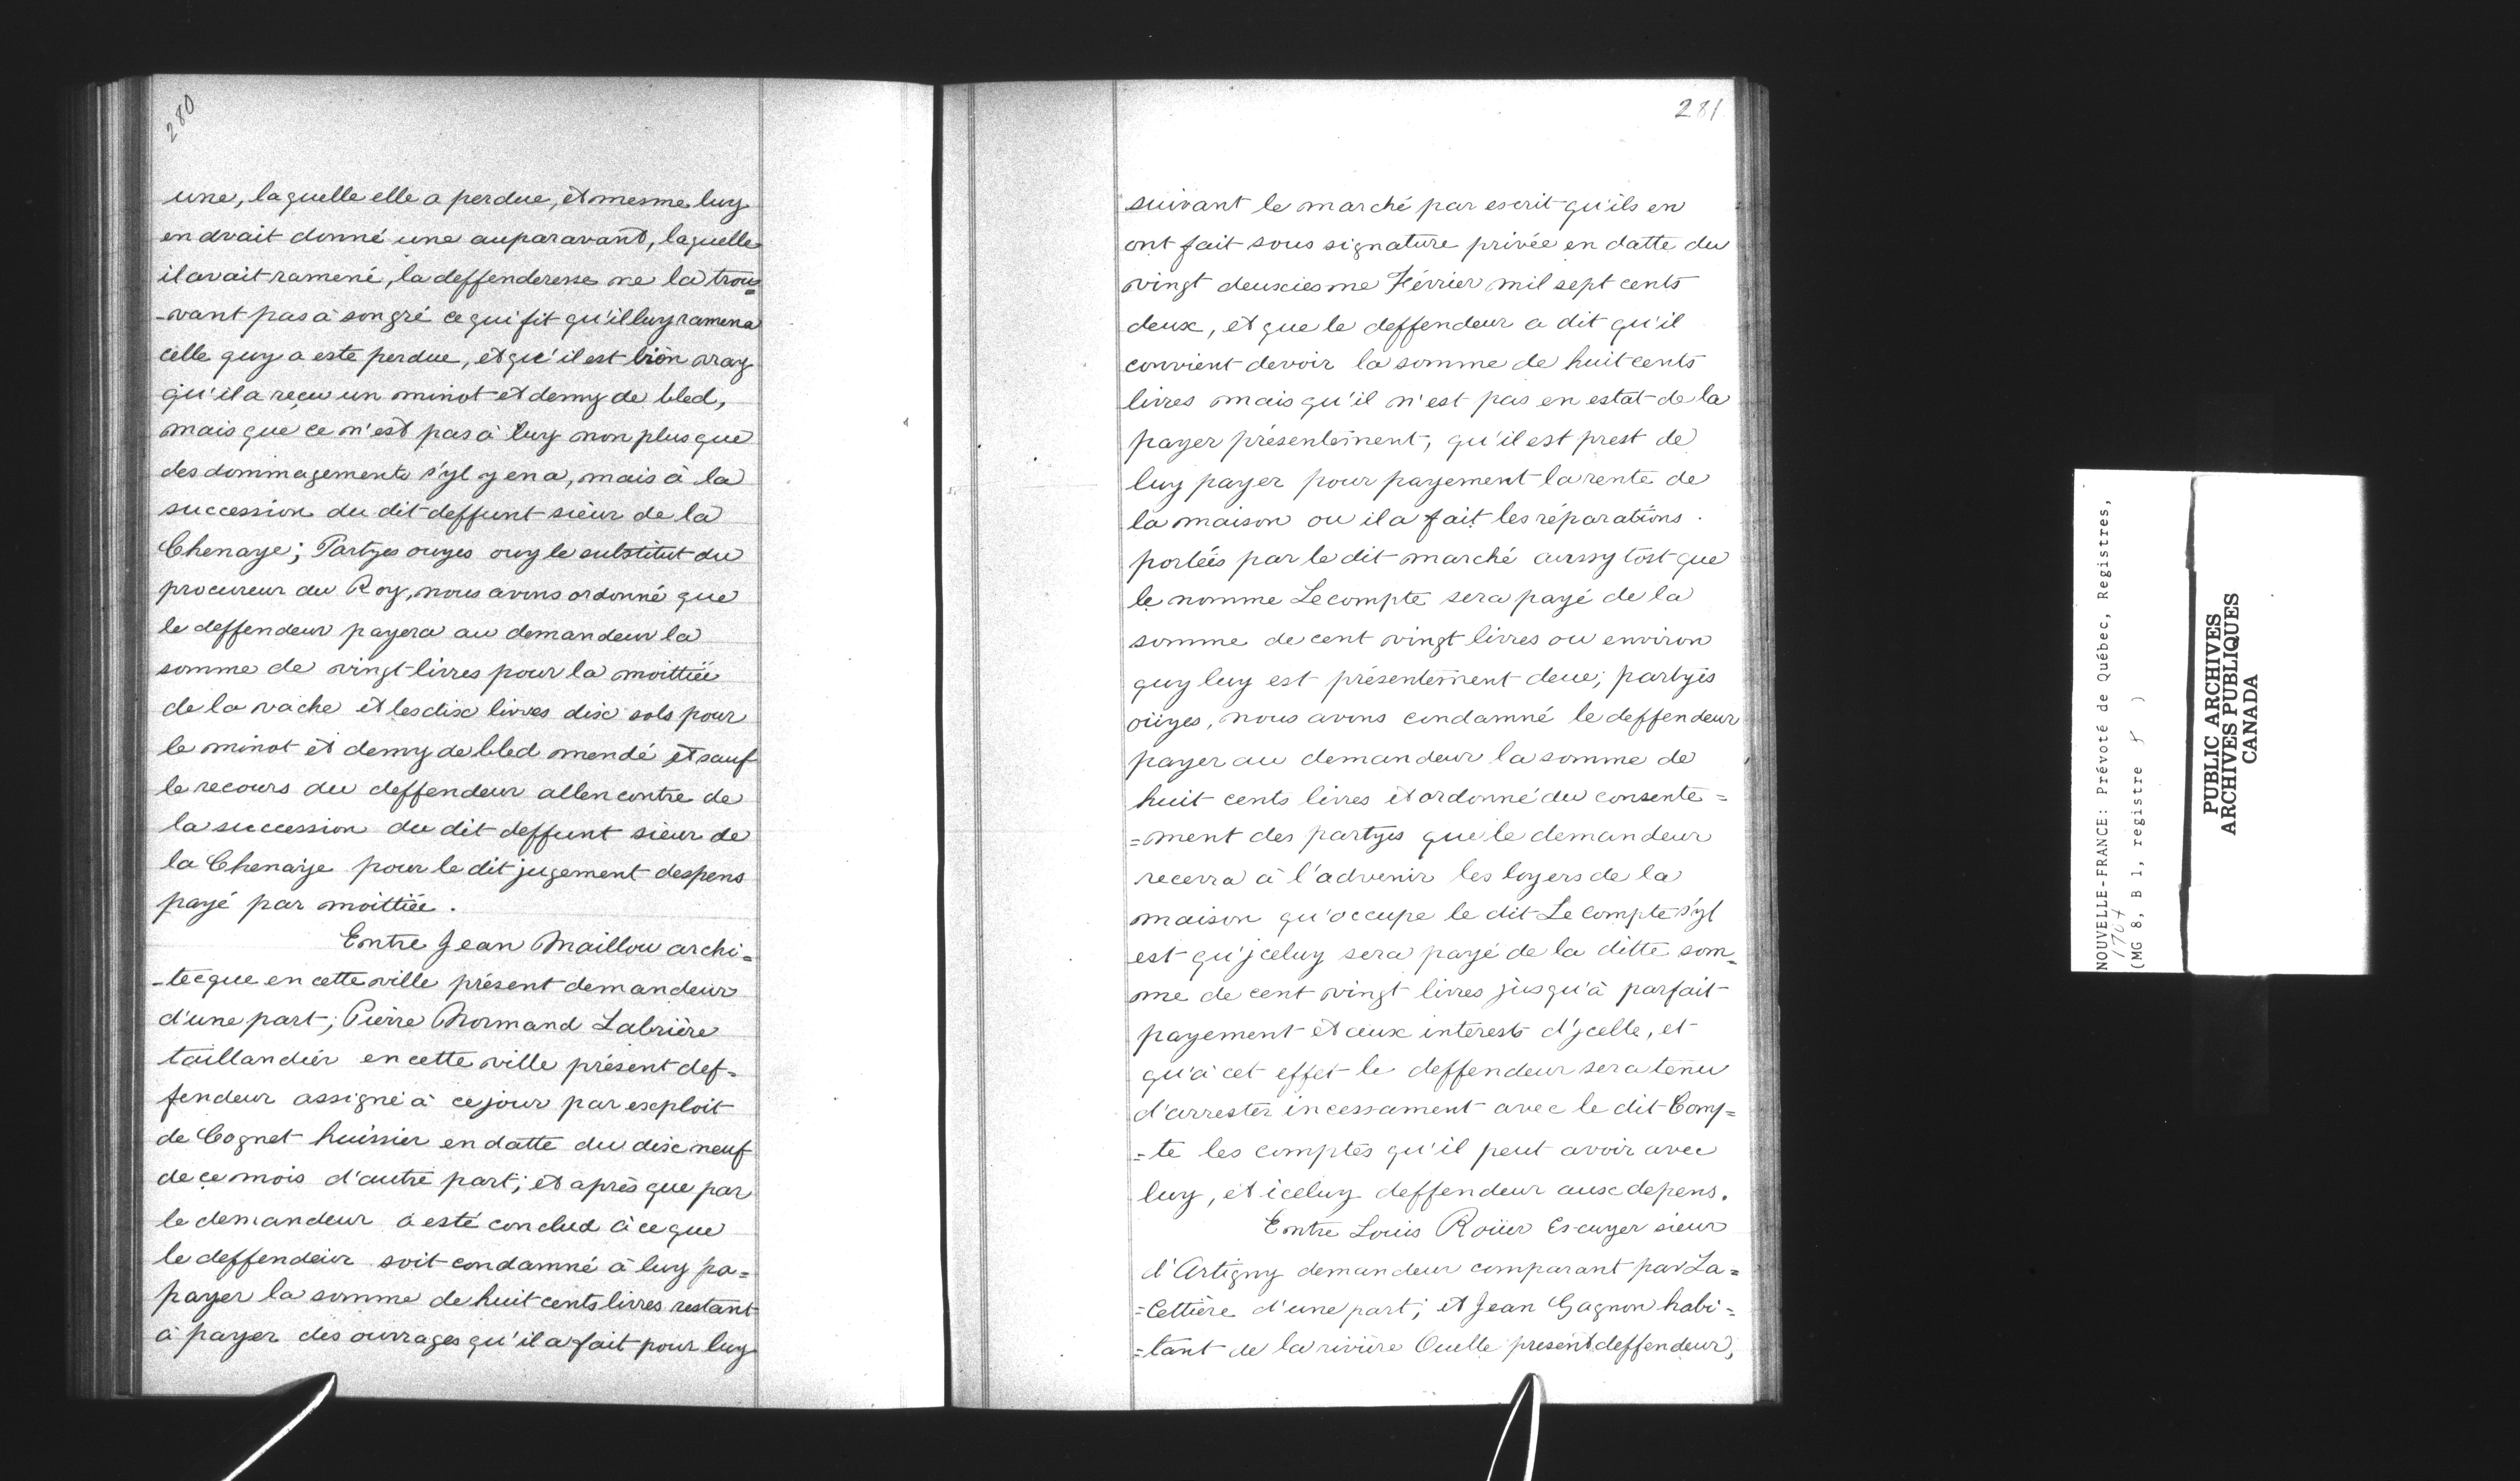 280
une, laquelle elle a perdue, et mesme luy
en avait donné une auparavant, laquelle
il avait ramené, la deffenderesse ne la trou=
-vant pas à son gré ce qui fit qu'il luy ramena
celle quy a este perdue, et que il est bien vray
qu'il a reçu un minot et demy de bled,
mais que ce n'est pas à luy non plus que
des dommagements s'yl y en a, mais à la
succession du dit deffunt sieur de la
Chenaye; Partyes ouyes ouy le substitut du
procureur du Roy, nous avons ordonné que
le deffendeur payera au demandeur la
somme de vingt livres pour la moittiée
de la vache et les dix livres dix sols pour
le minot et demy de bled mendé et sauf
le recours du deffendeur allencontre de
la succession du dit deffunt sieur de
la Chenaye pour le dit jugement despens
payé par moittiée.
Entre Jean Maillou archi=
-tecque en cette ville présent demandeur
d'une part; Pierre Normand Labrière
taillandier en cette ville présent def=
fendeur assigné à ce jour par exploit
de Cognet huissier en datte du dix neuf
de ce mois d'autre part; et après que par
le demandeur a esté conclud à ce que
le deffendeur soit condamné à luy pa=
payer la somme de huit cents livres restant
à payer des ouvrages qu'il a fait pour luy
281
suivant le marché par escrit qu'ils en
ont fait sous signature privée en datte du
vingt deuxiesme Février mil sept cents
deux, et que le deffendeur a dit qu'il
convient devoir la somme de huit cents
livres mais qu'il n'est pas en estat de la
payer présentement, qu'il est prest de
luy payer pour payement la rente de
la maison ou il a fait les réparations.
portées par le dit marché aussy tost que
le nomme Lecompte sera payé de la
somme de cent vingt livres ou environ
quy luy est présentement deue; partyes
oüyes, nous avons condamné le deffendeur
payer au demandeur la somme de
huit cents livres et ordonné du consente=
=ment des partyes que le demandeur
recevra à l'advenir les loyers de la
maison qu'occupe le dit Lecompte s'yl
est qu'jceluy sera payé de la ditte som=
me de cent vingt livres jusqu'à parfait
payement et aux interests d'jcelle, et
qu'à cet effet le deffendeur sera tenu
d'arrester incessament avec le dit Comp=
=te les comptes qu'il peut avoir avec
luy, et iceluy deffendeur aux depens.
Entre Louis Roüer Escuyer sieur
d'Artigny demandeur comparant par La=
=Cettière d'une part; et Jean Gagnon habi=
=tant de la rivière Ouelle présent deffendeur,
NOUVELLE-FRANCE: Prévoté de Québec, Registres,
1704
(MG 8, B 1, registre 5 )
PUBLIC ARCHIVES
ARCHIVES PUBLIQUES
CANADA